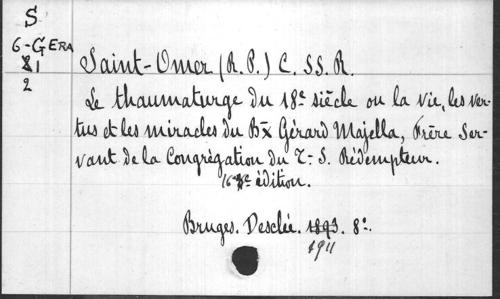 S
6-GERA
1
2
Saint-Omer (R.P.) C. SS. R.
Le thaumaturge du 18e siècle ou la vie, les ver-
tus et les miracles du Bx Gérard Majella, Frère Ser-
vant de la Congrégation du T.-S. Rédempteur.
16e édition.
Bruges. Desclée. 1893. 8°.
1911